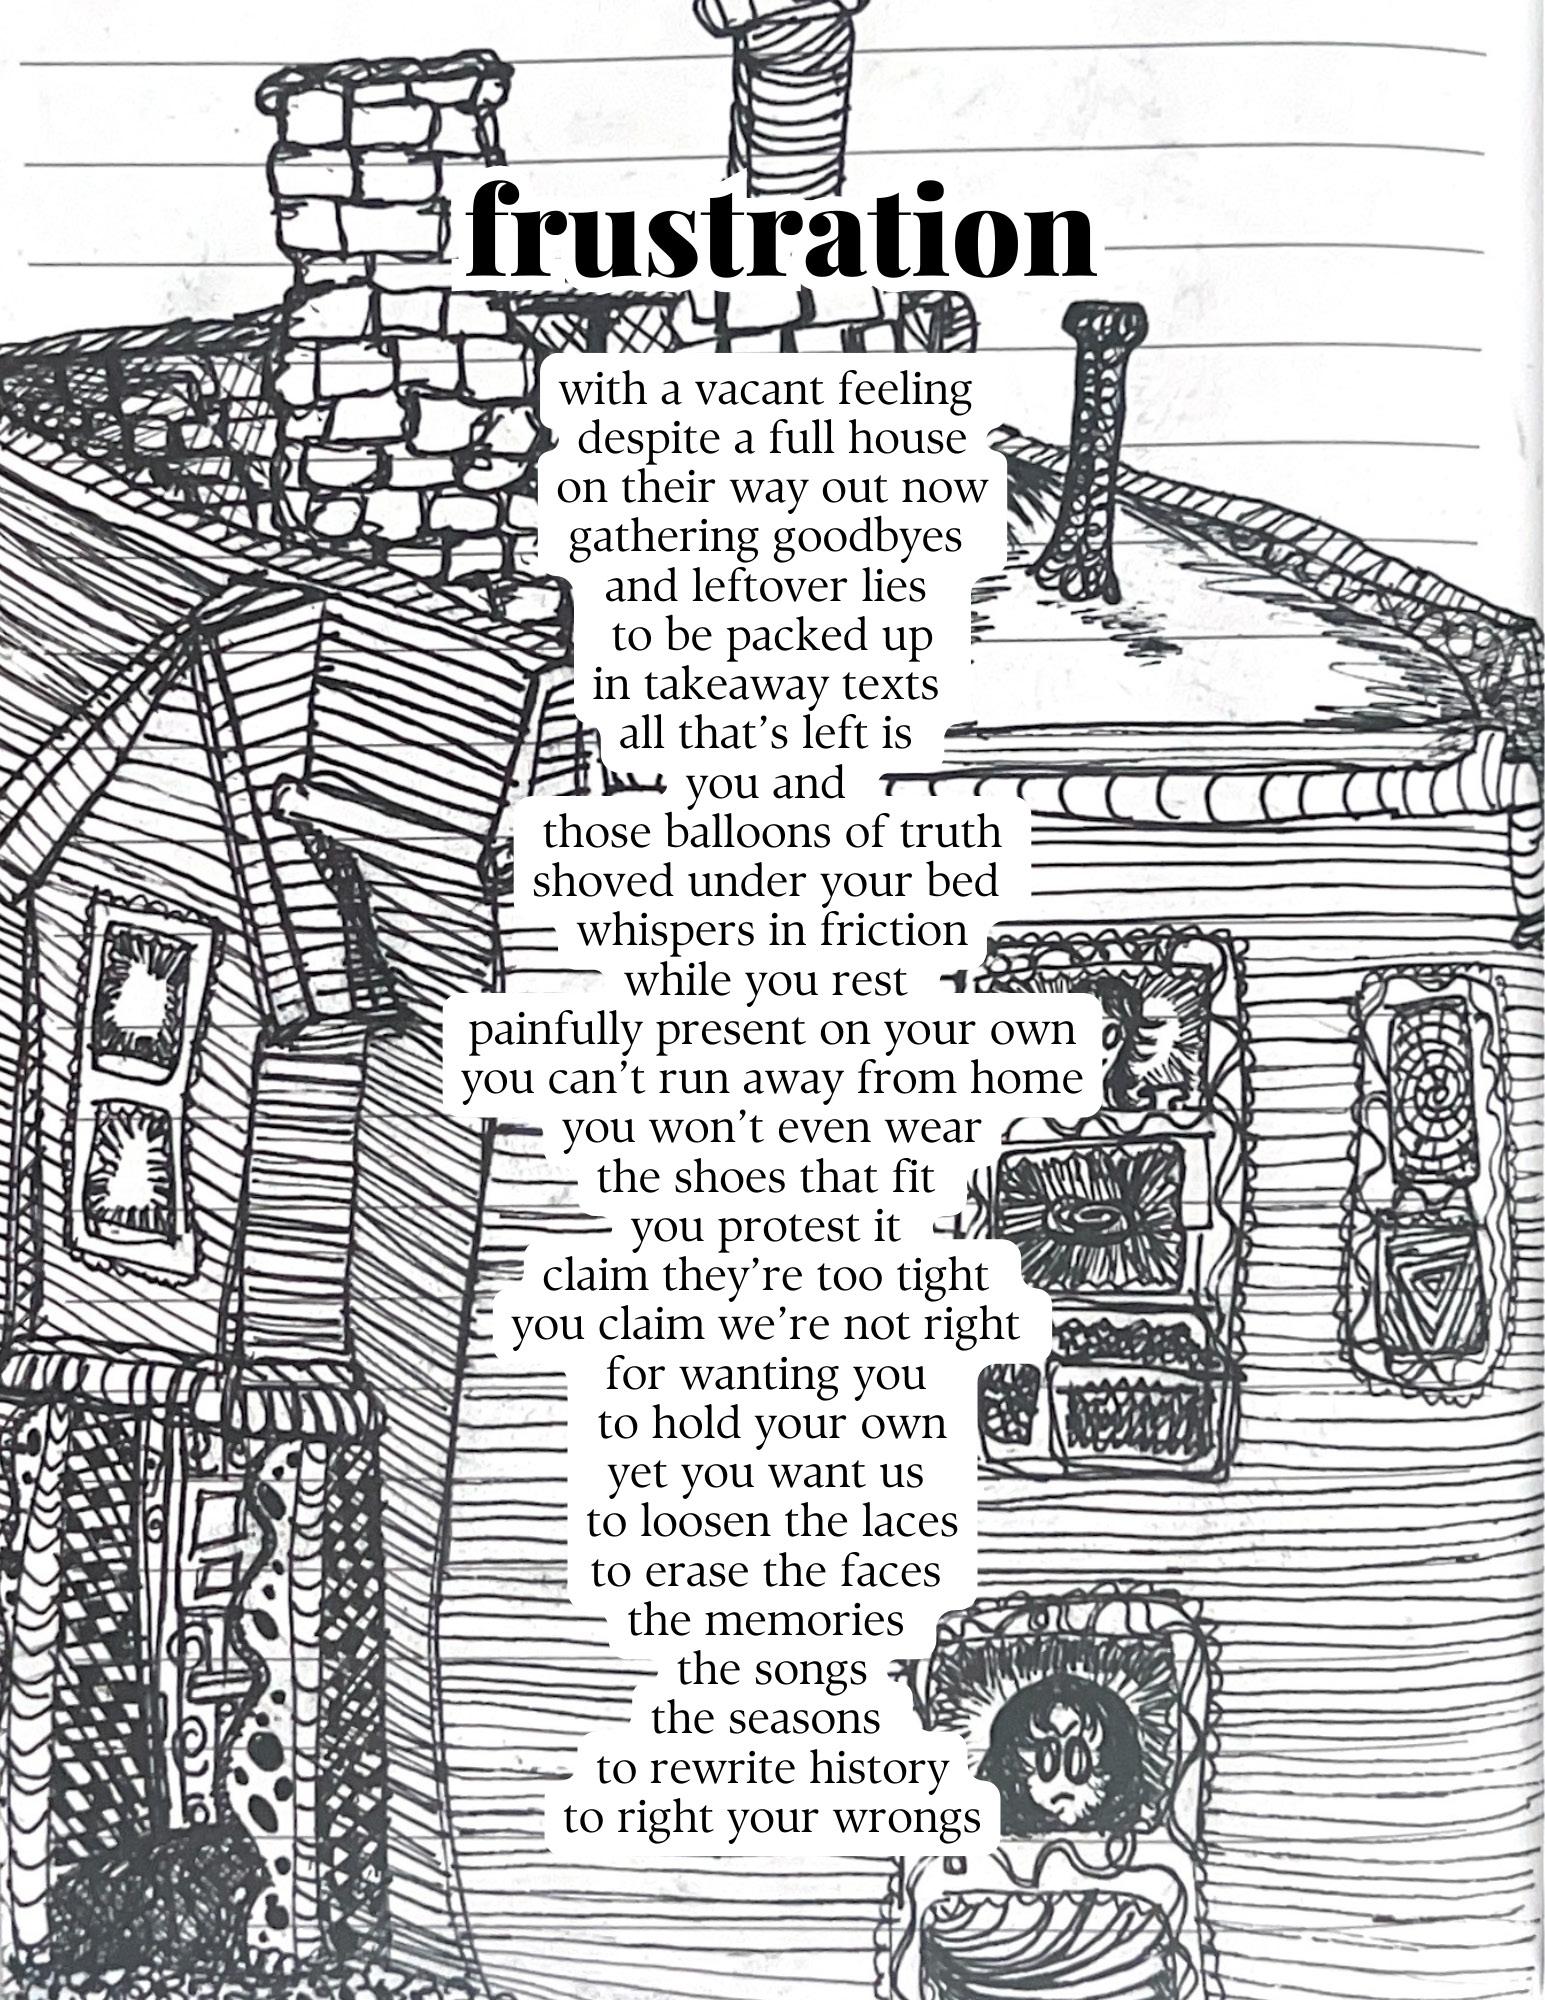 frustration
with a vacant feeling
despite a full house
on their way out now
gathering goodbyes
and leftover lies
to be packed up
in takeaway texts
all that’s left is
you and
those balloons of truth
shoved under your bed
whispers in friction
while you rest
painfully present on your own
you can’t run away from home
you won’t even wear
the shoes that fit
you protest it
claim they’re too tight
you claim we’re not right
for wanting you
to hold your own
yet you want us
to loosen the laces
to erase the faces
the memories
the songs
the seasons
to rewrite history
to right your wrongs